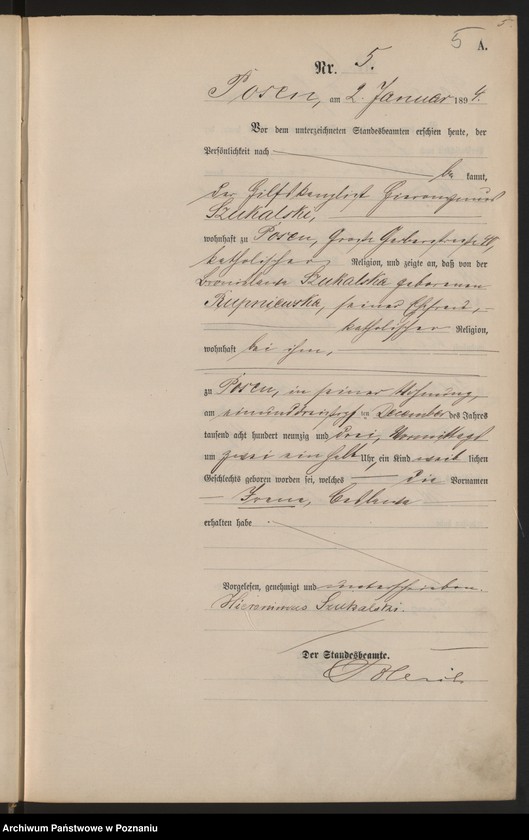 5.
5 A.
Nr. 5.
Posen, am 2 Januar 1894.
Vor dem unterzeichneten Standesbeamten erschien heute, der
Persönlichkeit nach
be kannt,
der Hilfskanzlist Hieronymus
Szukalski,
wohnhaft zu Posen, Große Gerberstraße
katholischer Religion, und zeigte an, daß von der
Szukalska geborenen
Rupniewska, seiner Ehefrau,
katholischer Religion,
wohnhaft bei ihm,
zu Posen, in seiner Wohnung,
am einunddreißigsten December des Jahres
tausend acht hundert neunzig und drei, Vormittags
um zwei ein halb Uhr, ein Kind weib lichen
Geschlechts geboren worden sei, welches die Vornamen
Irene,
erhalten habe
Vorgelesen, genehmigt und unterschrieben.
Hieronimus Szukalski.
Der Standesbeamte.
Archiwum Państwowe w Poznaniu